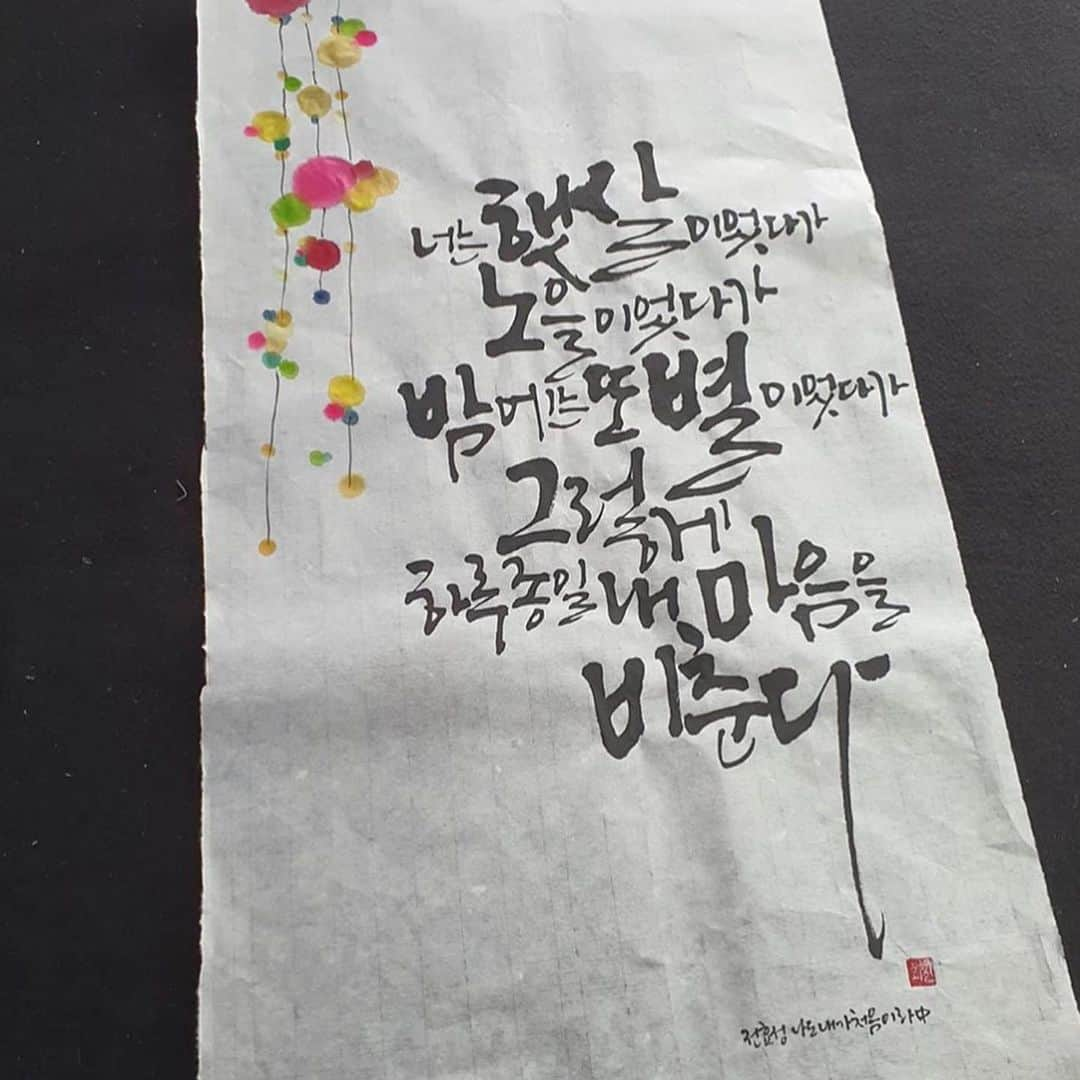 너는 햇살이었다가
노을이었다가
밤에는 또 별이었다가
그렇게
하루종일 내 마음을
비춘다
전효성 나도 내가 처음이라 中